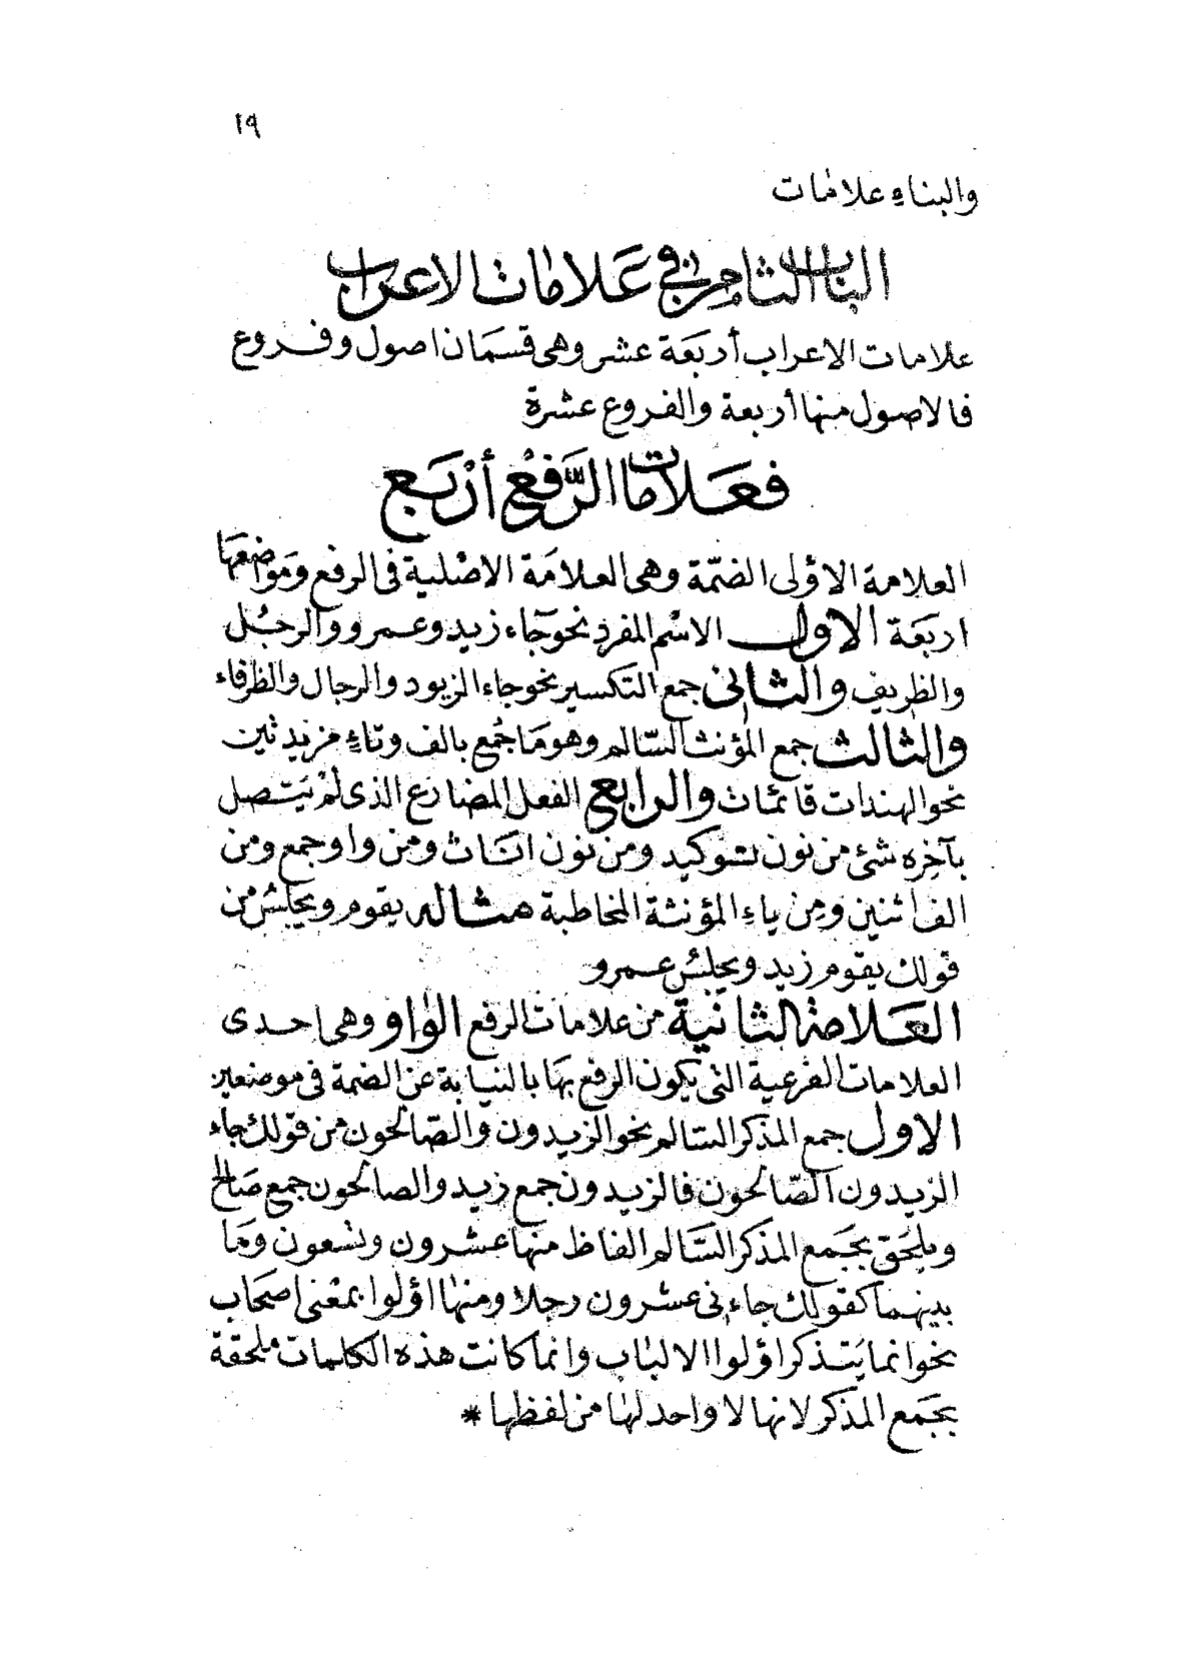 ١٩
والبناءِ علامات
الباب الثامن في عَلامات الاعراب
علامات الاعراب أربَعَة عشر وهى قسمَان اصول وفروع
فالاصول منها أربعة والفروع عشرة
فعَلامات الرَّفعُ أرْبَع
العلامة الاؤلى الضمّة وهى العلامَة الاصْلية فى الرفع وَمَواضعهَا
اربَعَة الاول الاسْم المفرد نحو جَاء زيد وعمرو والرجُل
والظريف والثانى جمع التكسير نحو جاء الزيود والرجال والظرفاء
والثالث جمع المؤنث السّالم وهو مَا جُمع بالف وتاءٍ مزيدتين
نحو الهندات قائمات والرابع الفعل المضارع الذى لمْ يَتصل
بآخِره شئ من نون توكيد ومن نون اناث ومن واو جمع ومن
الف اثنين ومِن ياءِ المؤنثة المخاطبة مثاله يقوم ويجلسُ من
قولك يقوم زيد ويجلسُ عمرو
العَلامة الثانيَة من علامات الرفع الواو وهى احدى
العلامات الفرعية التى يكون الرفع بهَا بالنيابة عن الضمة فى موضعين
الاول جمع المذكر السّالم نحو الزيدون والصّالحون من قولك جاء
الزيدون الصّالحون فالزيدون جمع زيد والصالحون جمع صَالح
ويلحَق بجَمع المذكر السَّالم الفاظ منها عشرون وتسعون ومَا
بينهما كقولك جاءنى عشرون رجلا ومنهَا اؤلوا بمعْنى اصحَاب
نحو انما يَتذكر اؤلوا الالبَاب وانما كانت هذه الكلمات ملحقة
بجَمع المذكر لانها لا واحد لهَا من لفظها *